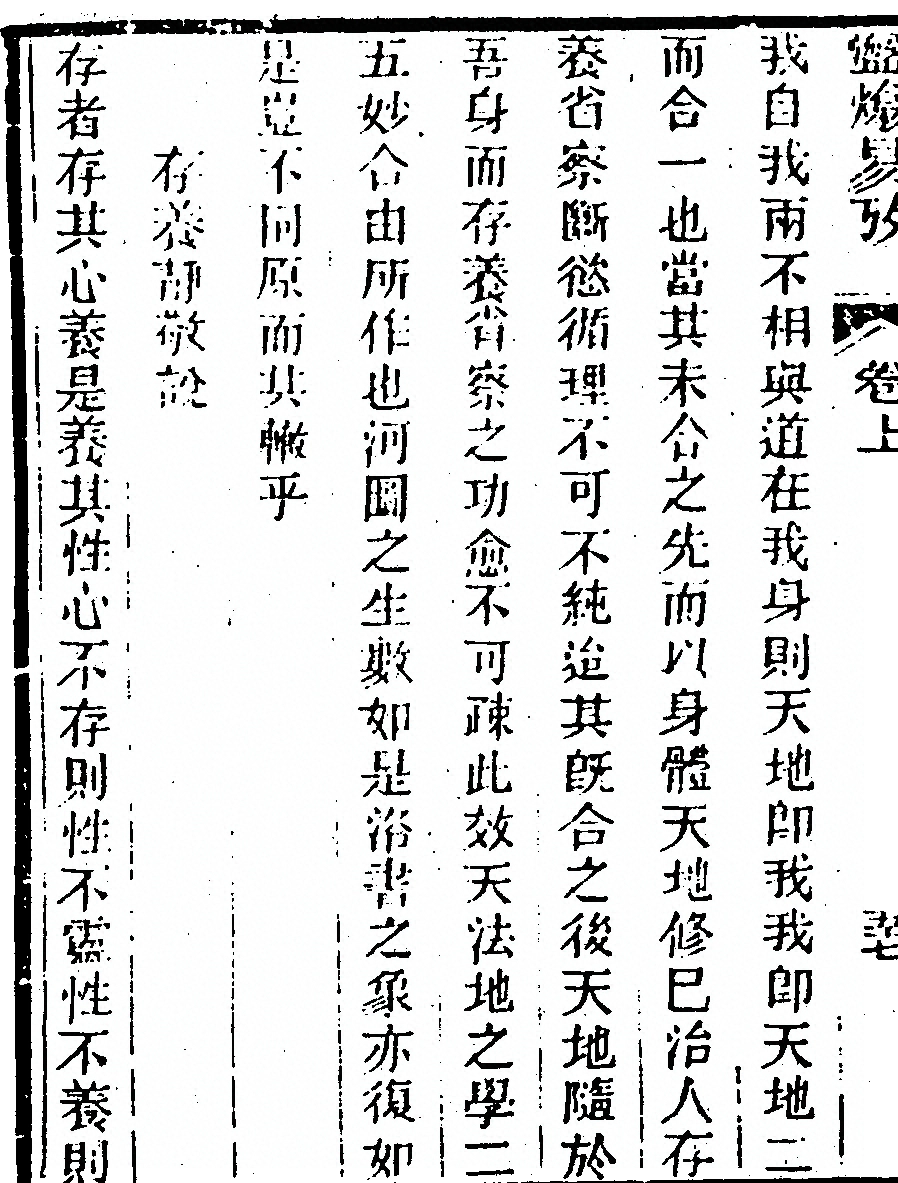 易攷 卷上
我自我兩不相與道在我身則天地卽我我卽天地二
而合一也當其未合之先而以身體天地修已治人存
養省察斷慾循理不可不純迨其旣合之後天地隨於
吾身而存養省察之功愈不可疎此效天法地之學二
五妙合由所作也河圖之生數如是洛書之象亦復如
是豈不同原而共轍乎
存養靜敬說
存者存其心養是養其性心不存則性不靈性不養則